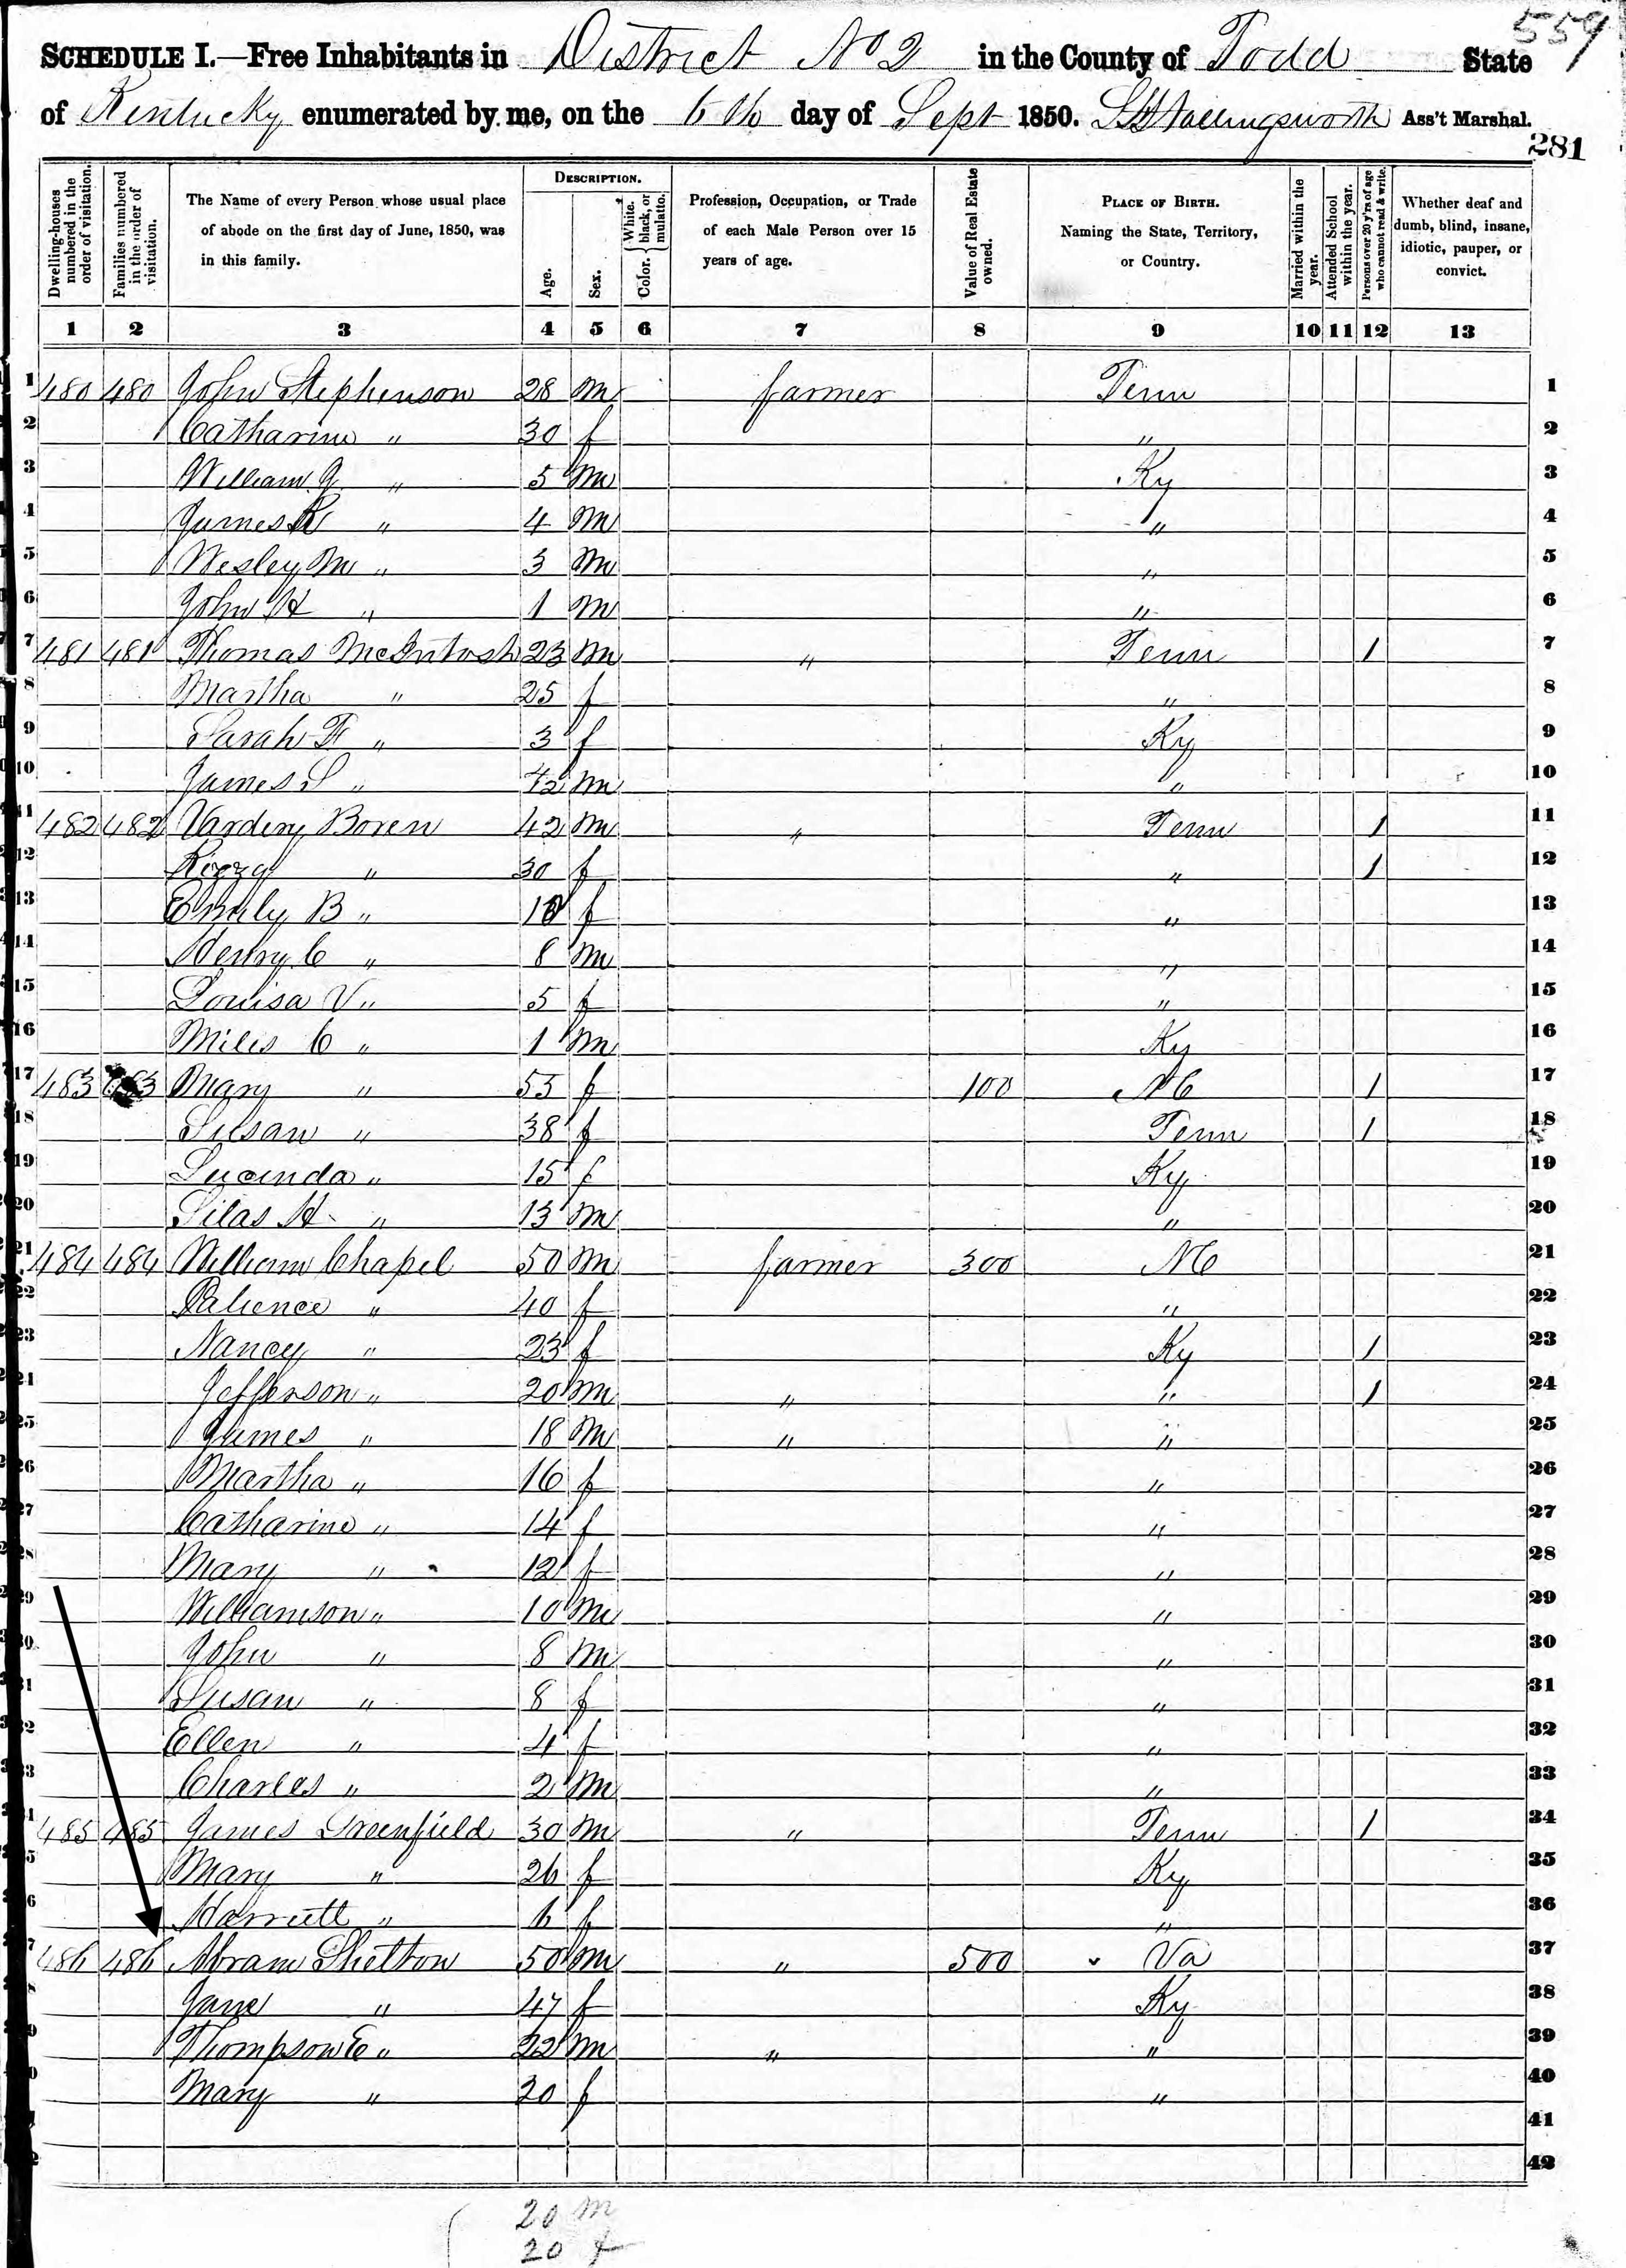 559
SCHEDULE I.—Free Inhabitants in District No 2 in the County of Todd State
of Kentucky enumerated by me, on the 6th day of Sept 1850. Hollingsworth Ass't Marshal.
281
Dwelling-houses numbered in the order of visitation.
Families numbered in the order of visitation.
The Name of every Person whose usual place of abode on the first day of June, 1850, was in this family.
DESCRIPTION.
Age.
Sex.
Color. White, black, or mulatto.
Profession, Occupation, or Trade of each Male Person over 15 years of age.
Value of Real Estate owned.
PLACE OF BIRTH. Naming the State, Territory, or Country.
Married within the year.
Attended School within the year.
Persons over 20 y'rs of age who cannot read & write.
Whether deaf and dumb, blind, insane, idiotic, pauper, or convict.
1 2 3 4 5 6 7 8 9 10 11 12 13
1 480 480 John Stephenson 28 m farmer Tenn 1
2 Catharine " 30 f " 2
3 William J " 5 m Ky 3
4 James R " 4 m " 4
5 Wesley M " 3 m " 5
6 John H " 1 m " 6
7 481 481 Thomas McIntosh 23 m " Tenn 1 7
8 Martha " 25 f " 8
9 Sarah F " 3 f Ky 9
10 James S " m " 10
11 482 482 Vardery Boren 42 m " Tenn 1 11
12 " 30 f " 1 12
13 Emily B " 10 f " 13
14 Henry C " 8 m " 14
15 Louisa V " 5 f " 15
16 Miles C " 1 m Ky 16
17 483 483 Mary " 55 f 100 NC 1 17
18 Susan " 38 f Tenn 1 18
19 Lucinda " 15 f Ky 19
20 Silas H " 13 m " 20
21 484 484 William Chapel 50 m farmer 300 NC 21
22 Patience " 40 f " 22
23 Nancy " 23 f Ky 1 23
24 Jefferson " 20 m " " 1 24
25 James " 18 m " " 25
26 Martha " 16 f " 26
27 Catharine " 14 f " 27
28 Mary " 12 f " 28
29 Williamson " 10 m " 29
30 John " 8 m " 30
31 Susan " 8 f " 31
32 Ellen " 4 f " 32
33 Charles " 2 m " 33
34 485 485 James Greenfield 30 m " Tenn 1 34
35 Mary " 26 f Ky 35
36 Harriett " 6 f " 36
37 486 486 Abram Shelton 50 m " 500 Va 37
38 Jane " 47 f Ky 38
39 Thompson E " 22 m " " 39
40 Mary " 20 f " 40
41
42
20 m
20 f